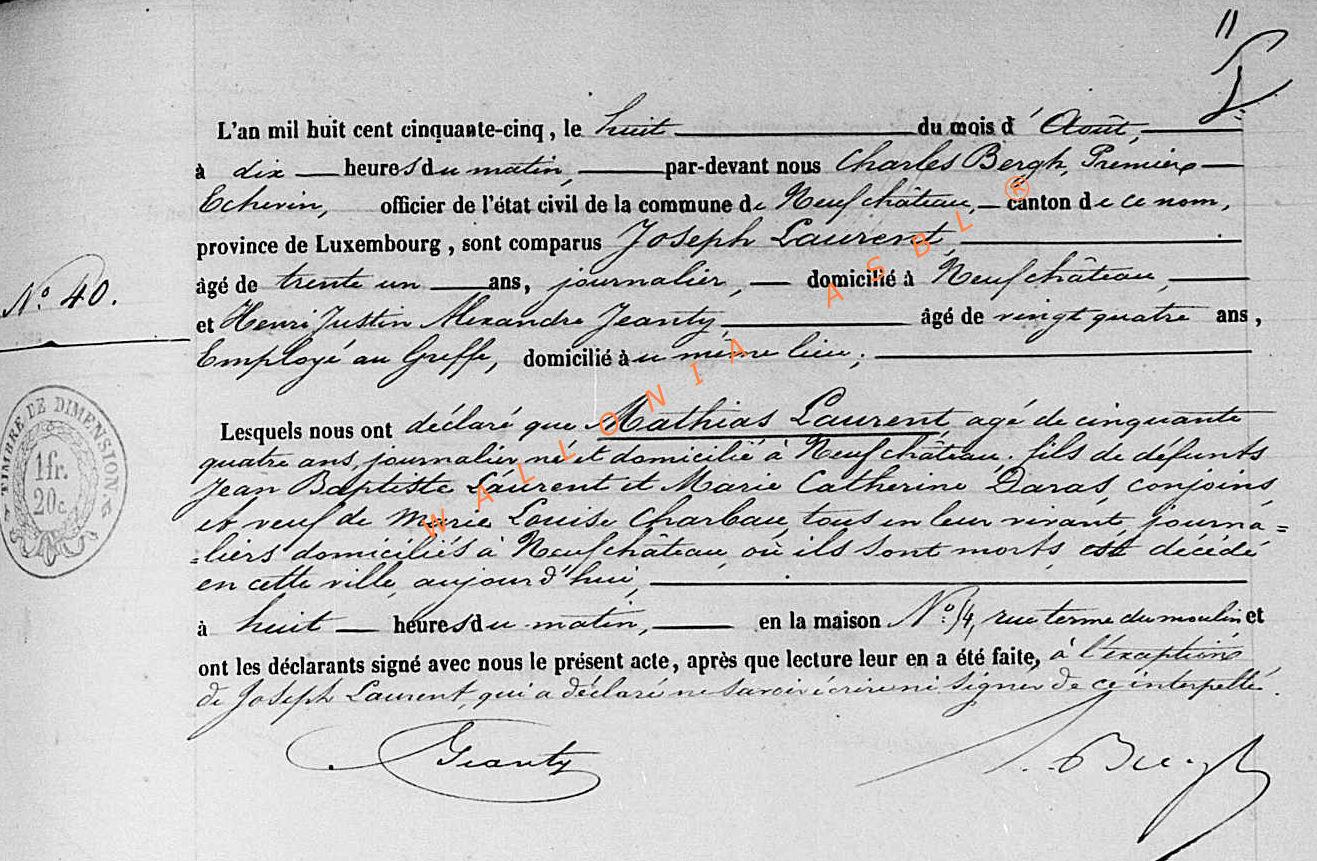 11
L'an mil huit cent cinquante-cinq, le huit du mois d'Août,
à dix heures du matin, par-devant nous Charles Bergh, Premier
Echevin, officier de l'état civil de la commune de Neufchâteau, canton de ce nom,
province de Luxembourg, sont comparus Joseph Laurent,
âgé de trente un ans, journalier, domicilié à Neufchâteau,
et Henri Justin Alexandre Jeanty, âgé de vingt quatre ans,
Employé au Greffe, domicilié au même lieu;
N° 40.
Lesquels nous ont déclaré que Mathias Laurent, agé de cinquante
quatre ans, journalier né et domicilié à Neufchâteau, fils de défunts
Jean Baptiste Laurent et Marie Catherine Daras, conjoins,
et veuf de Marie Louise Charbau, tous en leur vivant journa=
=liers domiciliés à Neufchâteau, où ils sont morts, est décédé
en cette ville, aujourd'hui,
à huit heures du matin, en la maison N° 54, rue terme du moulin et
ont les déclarants signé avec nous le présent acte, après que lecture leur en a été faite, à l'exception
de Joseph Laurent, qui a déclaré ne savoir écrire ni signer de ce interpellé.
TIMBRE DE DIMENSION
1 fr.
20 c.
Jeanty
Bergh
WALLONIA ASBL ®